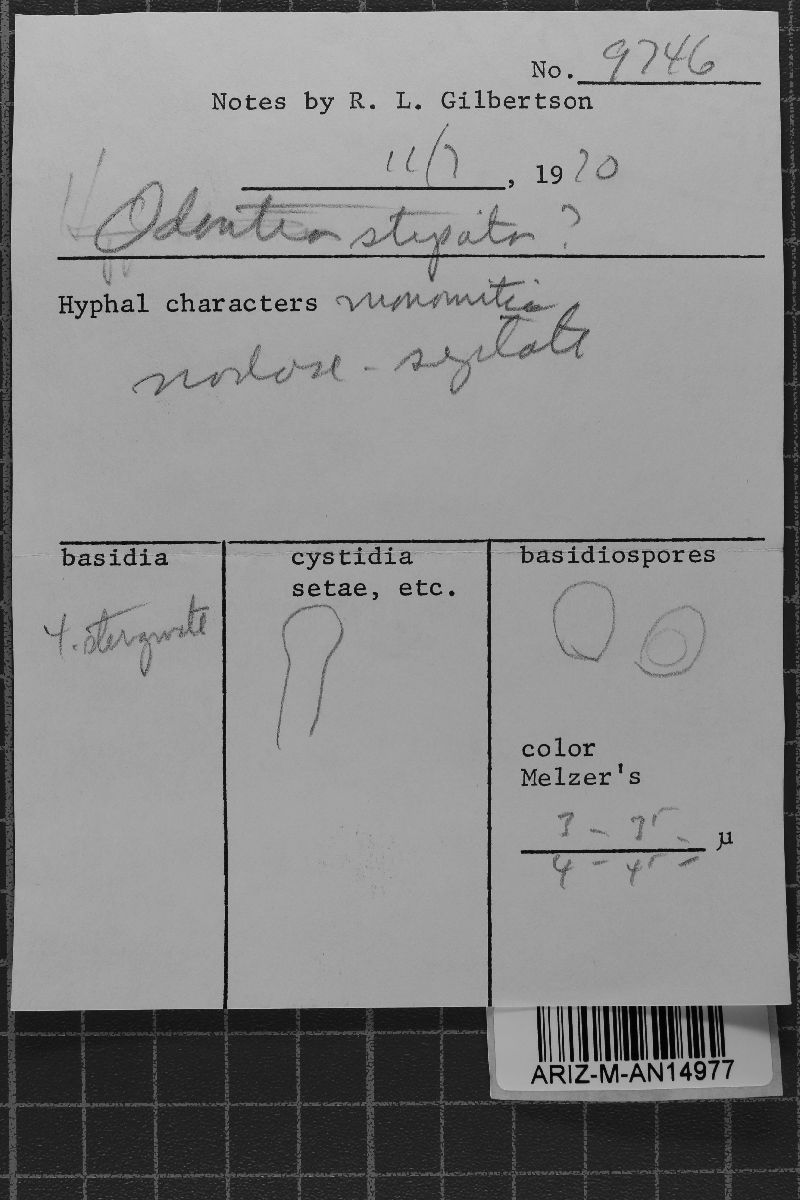 No. 9746
Notes by R. L. Gilbertson
11/7, 1970
Odontia stipata ?
Hyphal characters monomitic
nodose - septate
basidia
cystidia
setae, etc.
basidiospores
4-sterigmate
color
Melzer's
3 - 3.5 µ
4 - 4.5
ARIZ-M-AN14977